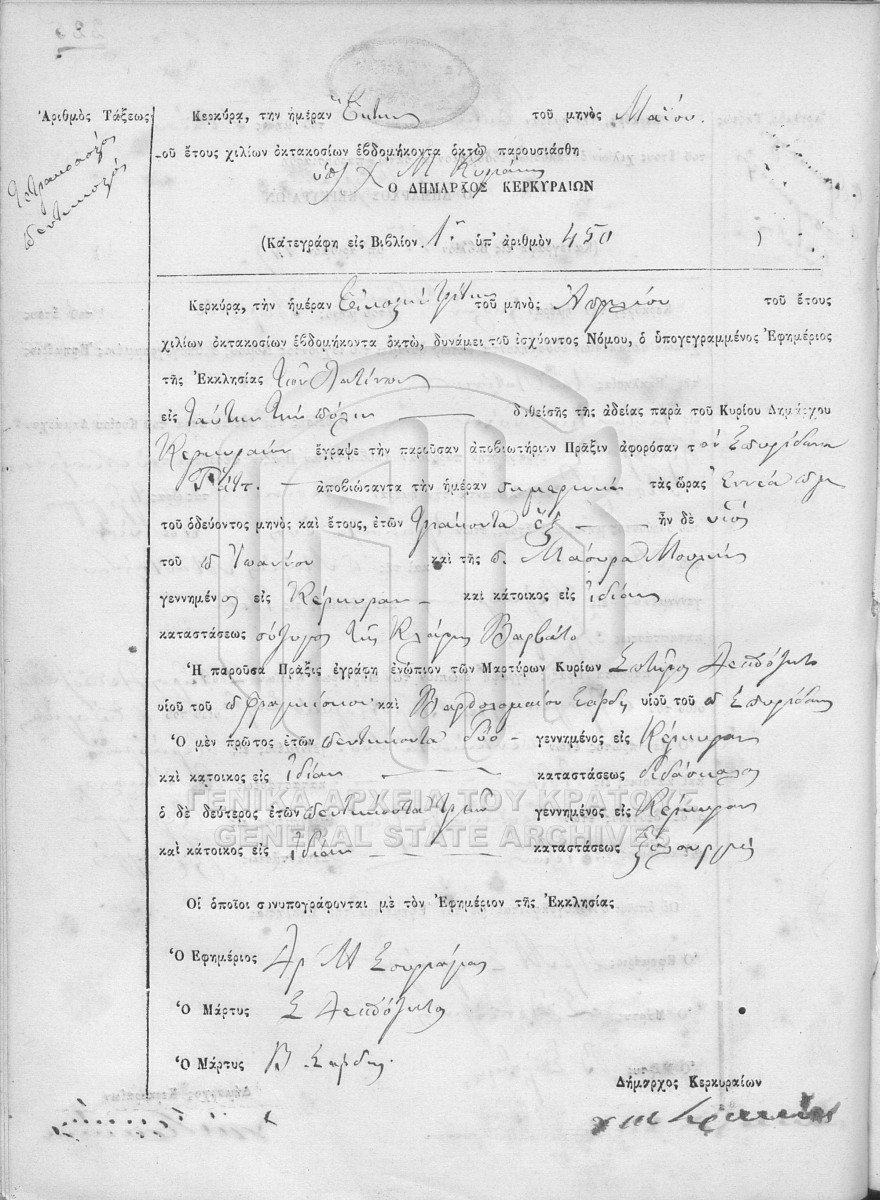 Ἀριθμὸς Τάξεως
Τετρακοσιοστὸς
πεντηκοστός
Κερκύρα, την ημέραν Ἕκτην τοῦ μηνὸς Μαΐου.
τοῦ ἔτους χιλίων ὀκτακοσίων ἑβδομήκοντα ὀκτὼ παρουσιάσθη
Ο ΔΗΜΑΡΧΟΣ ΚΕΡΚΥΡΑΙΩΝ
(Κατεγράφη εἰς Βιβλίον 1ον ὑπ' ἀριθμὸν 450 )
Κερκύρα, τὴν ἡμέραν Εἰκοστὴν τρίτην τοῦ μηνὸς Ἀπριλίου τοῦ ἔτους
χιλίων ὀκτακοσίων ἑβδομήκοντα ὀκτὼ, δυνάμει τοῦ ἰσχύοντος Νόμου, ὁ ὑπογεγραμμένος Ἐφημέριος
τῆς Ἐκκλησίας τῶν Λατίνων
εἰς ταύτην τὴν πόλιν — δοθείσης τῆς ἀδείας παρὰ τοῦ Κυρίου Δημάρχου
Κερκυραίων ἔγραψε τὴν παροῦσαν ἀποβιωτήριον Πρᾶξιν ἀφορῶσαν τὸν Σπυρίδωνα
— ἀποβιώσαντα τὴν ἡμέραν σημερινὴν τὰς ὥρας Ἐννέα π.μ.
τοῦ ὁδεύοντος μηνὸς καὶ ἔτους, ἐτῶν τριάκοντα ἓξ — ἦν δὲ υἱὸς
τοῦ π. Ἰωάννου καὶ τῆς π.
γεννημένος εἰς Κέρκυραν — καὶ κάτοικος εἰς ἰδίαν
καταστάσεως σύζυγος τῆς Κλάρης Βαρβάτο
Ἡ παροῦσα Πρᾶξις ἐγράφη ἐνώπιον τῶν Μαρτύρων Κυρίων Σπύρος
υἱοῦ τοῦ π Φραγκίσκου καὶ Βαρθολομαίου Σάρδη υἱοῦ τοῦ π Σπυρίδωνος
Ὁ μὲν πρῶτος ἐτῶν πεντήκοντα δύο — γεννημένος εἰς Κέρκυραν
καὶ κάτοικος εἰς ἰδίαν — καταστάσεως διδάσκαλος
ὁ δὲ δεύτερος ἐτῶν πεντήκοντα τριῶν γεννημένος εἰς Κέρκυραν
καὶ κάτοικος εἰς ἰδίαν — καταστάσεως ξυλουργὸς
Οἱ ὁποῖοι συνυπογράφονται μὲ τὸν Ἐφημέριον τῆς Ἐκκλησίας
Ὁ Ἐφημέριος
Ὁ Μάρτυς Σ
Ὁ Μάρτυς Β. Σάρδης.
Δήμαρχος Κερκυραίων
ΓΕΝΙΚΑ ΑΡΧΕΙΑ ΤΟΥ ΚΡΑΤΟΥΣ
GENERAL STATE ARCHIVES